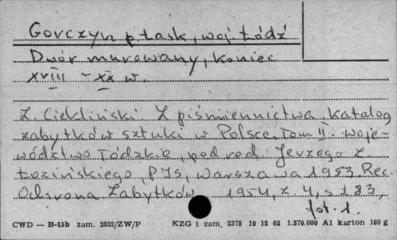 Gorczyn p. Łask, woj. Łódź
Dwór murowany, koniec
XVIII – XX w.
Z. Ciekliński Z piśmiennictwa Katalog
zabytków sztuki w Polsce. Tom II. Woje-
wództwo Łódzkie, pod red. Jerzego Z.
Łozińskiego, PIS, Warszawa 1953. Rec.
Ochrona Zabytków 1954, z. 4, s. 283,
fot. 1.
CWD — B-15b zam. 2032/ZW/P KZG 1 zam, 2375 19 12 62 1.570.000 A1 karton 180 g